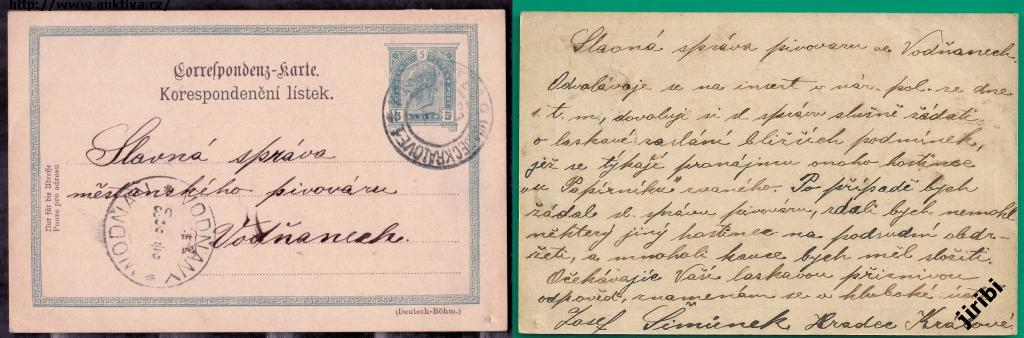 http://www.auktiva.cz/
Correspondenz-Karte.
Korespondenční lístek.
5
5 5
Nur für die Adresse
Pouze pro adresu
Slavná správa
měšťanského pivováru
Vodňanech.
WODŇAN VODŇANY
(Deutsch-Böhm.)
Slavná správa pivovaru ve Vodňanech.
Odvolávaje se na insert v nár. pol. ze dne
1. t. m., dovoluji si sl. správu slušně žádati
o laskavé zaslání bližších podmínek,
jež se týkají pronájmu onoho hostince
„u Papírníku zvaného. Po případě bych
žádal sl. správu pivováru, zdali bych nemohl
některý jiný hostinec na podzudní obdr-
žeti, a mnoholi kauce bych měl složiti.
Očekávajíc Vaší laskavou příznivou
odpověď, znamenám se v hluboké úctě
Josef Šimůnek Hradec Králové.
jiribi